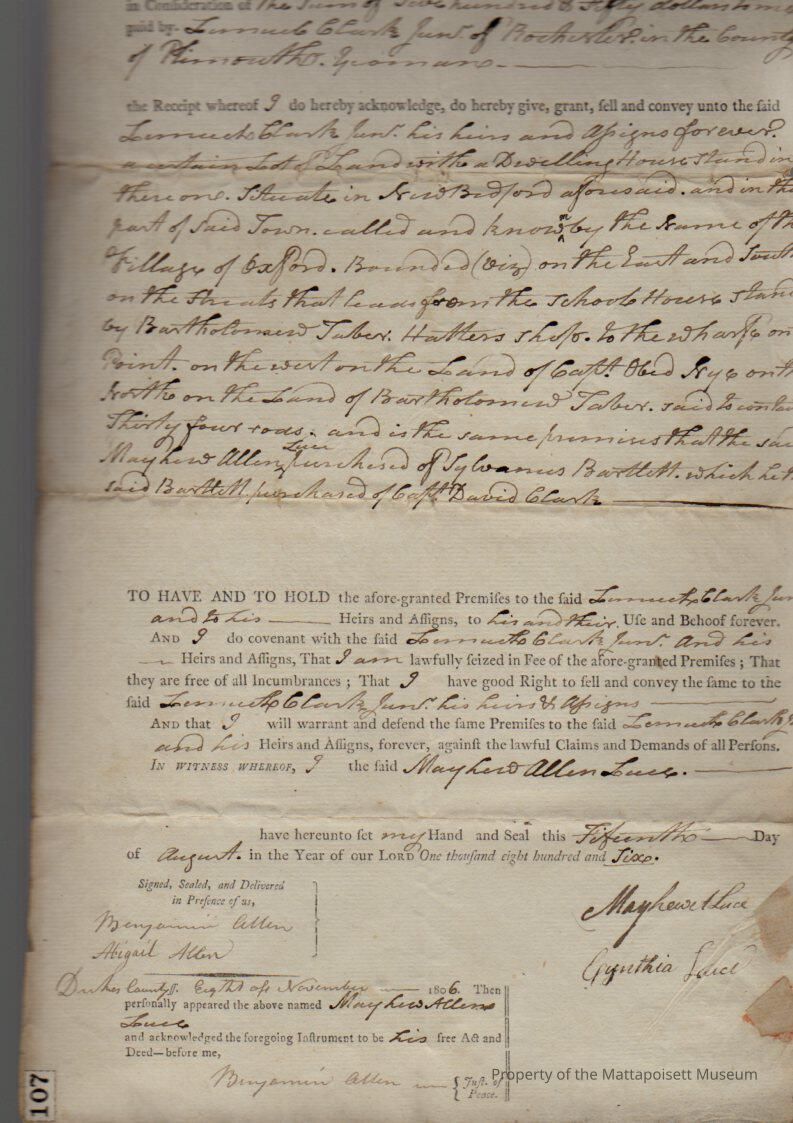 in Consideration of the Sum of Two hundred & Fifty dollars to me
paid by Lemuel Clark Junr. of Rochester. in the County
of Plimouth. Yeoman
the Receipt whereof I do hereby acknowledge, do hereby give, grant, ſell and convey unto the ſaid
Lemuel Clark Junr. his heirs and Assigns forever.
a certain Lot of Land with a Dwelling House standin
there one. Situate in New Bedford aforesaid. and in the
part of said Town. called and known by the Name of th
Village of Oxford. Bounded (viz) on the East and South
on the Streats that leads from the School House stand
by Bartholomew Taber. Hatters shop. to the wharfe on
Point. on the west on the Land of Capt. Obed Nye on th
North on the Land of Bartholomew Taber. said to contai
Thirty four rods. and is the same premises that the sai
Mayhew Allen Luce purchesed of Sylvanus Bartlett. which he th
said Bartlett purchased of Capt. David Clark
TO HAVE AND TO HOLD the afore-granted Premiſes to the ſaid Lemuel Clark Jun
and to his Heirs and Aſſigns, to his and their Uſe and Behoof forever.
AND I do covenant with the ſaid Lemuel Clark Junr. And his
Heirs and Aſſigns, That I am lawfully ſeized in Fee of the afore-granted Premiſes ; That
they are free of all Incumbrances ; That I have good Right to ſell and convey the ſame to the
ſaid Lemuel Clark Junr. his heirs & Assigns
AND that I will warrant and defend the ſame Premiſes to the ſaid Lemuel Clark J
and his Heirs and Aſſigns, forever, againſt the lawful Claims and Demands of all Perſons.
IN WITNESS WHEREOF, I the ſaid Mayhew Allen Luce.
have hereunto ſet my Hand and Seal this Fifteenth Day
of August. in the Year of our LORD One thouſand eight hundred and Six.
Signed, Sealed, and Delivered
in Preſence of us,
Benjamin Allen
Abigail Allen
Mayhew A Luce
Cynthia Luce
Dukes County ſſ. Eighth of November 1806. Then
perſonally appeared the above named Mayhew Allen
Luce
and acknowledged the foregoing Inſtrument to be his free Act and
Deed—before me,
Benjamin Allen { Juſt. of
Peace.
107
Property of the Mattapoisett Museum